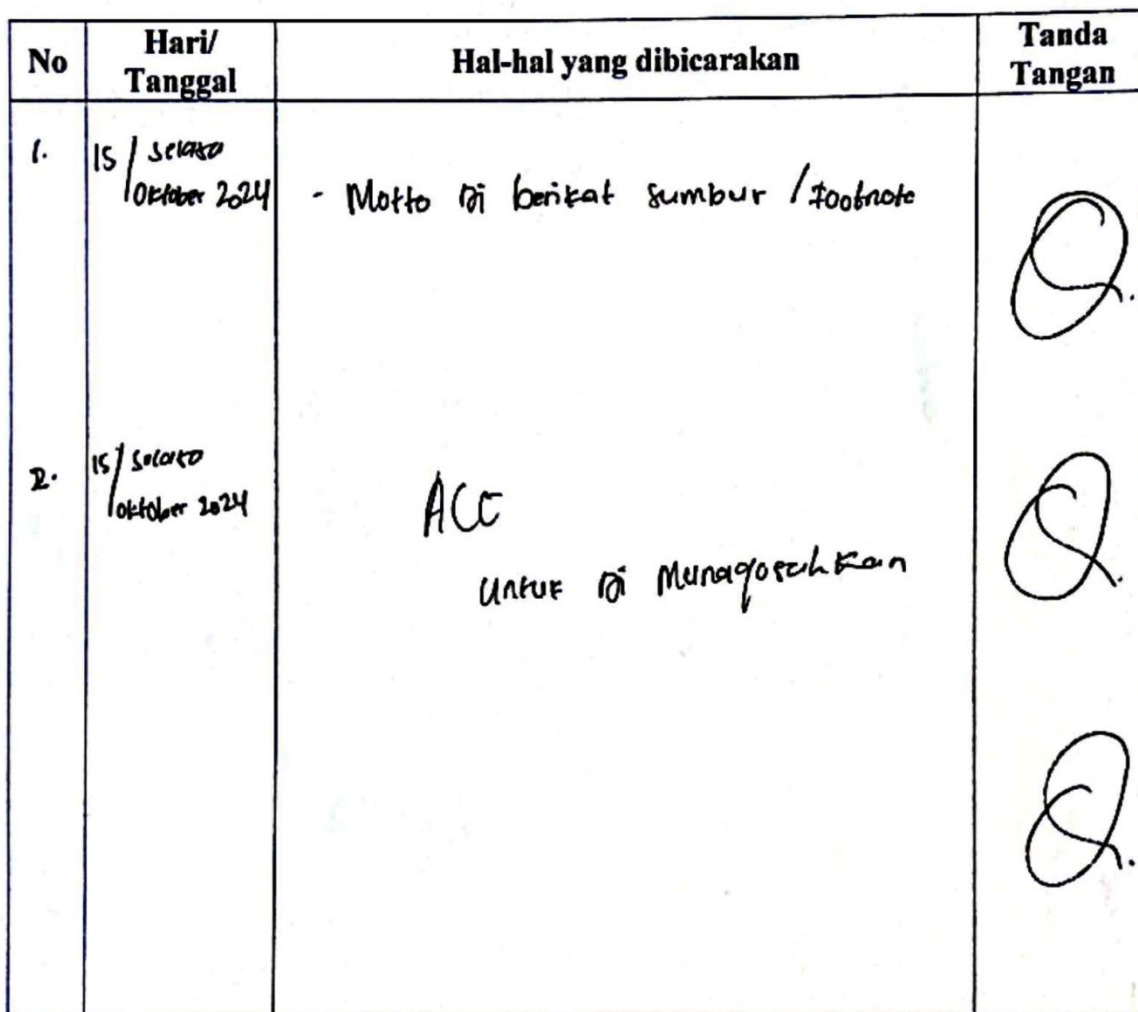 No Hari/ Tanggal Hal-hal yang dibicarakan Tanda Tangan
1. 15 / Selasa
Oktober 2024 - Motto Di berikat sumbur / Footnote
2. 15 / Selasa
Oktober 2024
ACC
Untuk Di Munaqosahkan